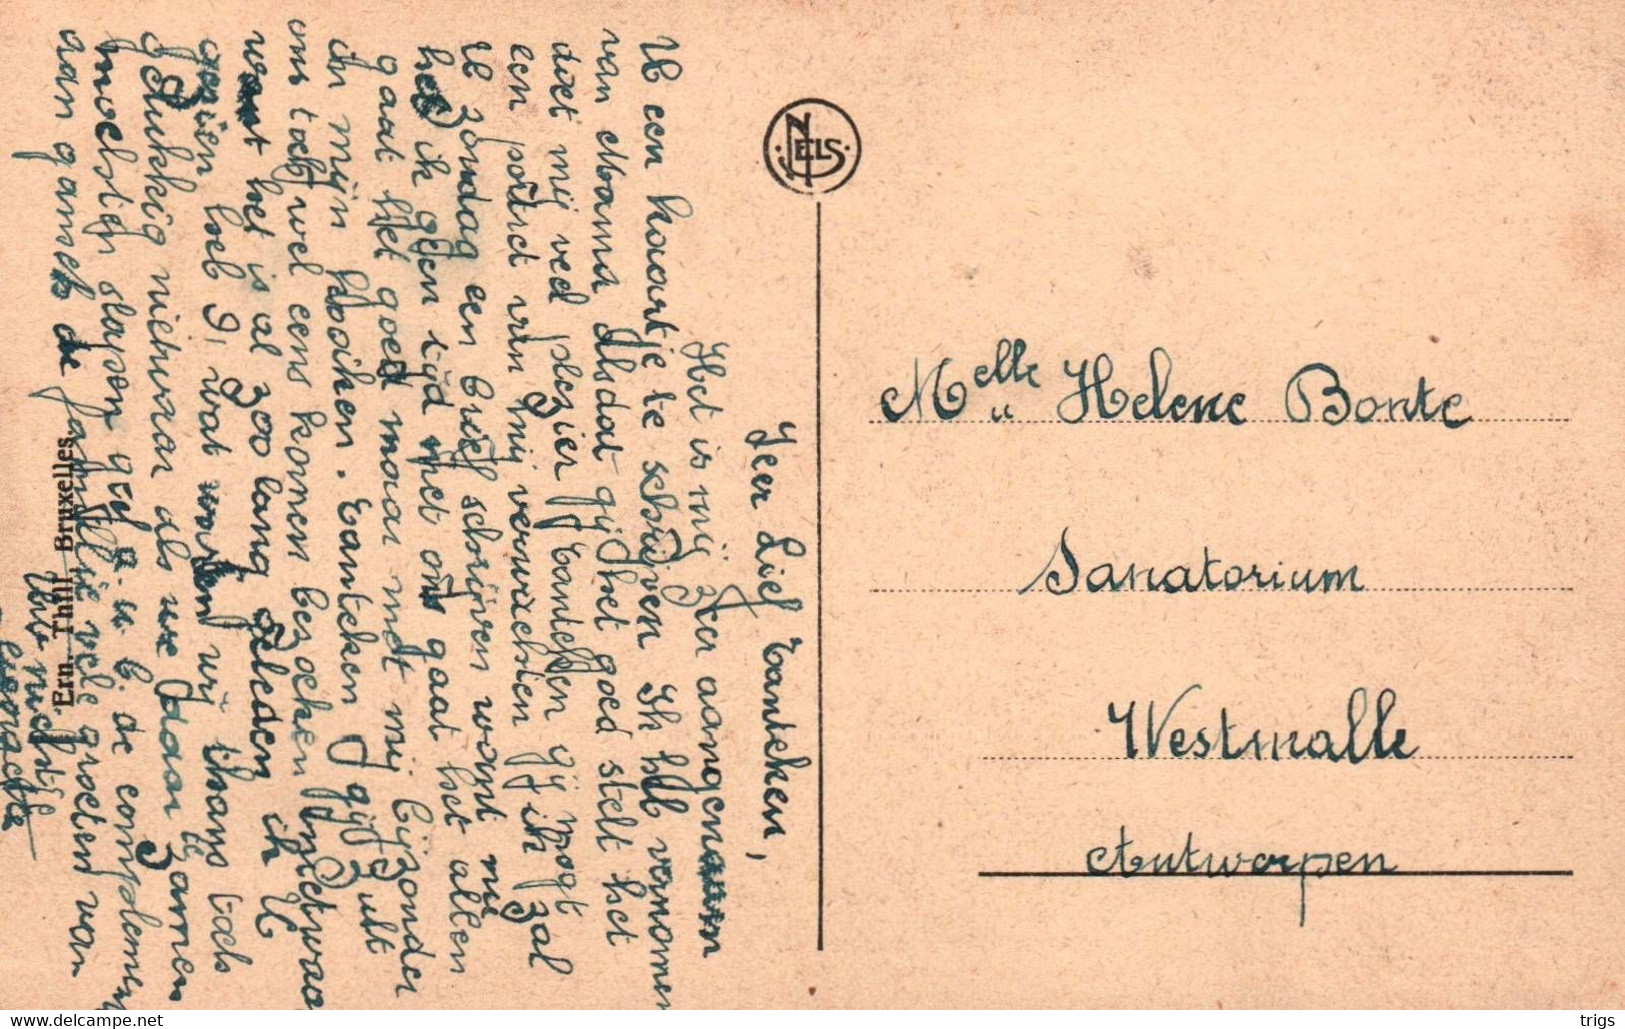 Zeer Lief Tanteken,
Het is mij zeer aangenaam
U een kaartje te schrijven Ik heb vernomen
van Mama alsdat gij het goed stelt het
doet mij veel plezier Tanteken gij moogt
een poind van mij verwachten ik zal
U zondag een brief schrijven want nu
heb ik geen tijd met ons gaat het allen
gaat het goed maar met mij bijzonder
in mijn kooiken. Tanteken gij zult
ons toch wel eens komen bezoeken nietwaar
want het is al zoo lang geleden ik U
gezien heb 9, wat waren wij thans toch
gelukkig nietwaar als we daar zamen
mochten slapen a.u.b. de complementen
aan gansch de familie vele groeten van
Uw nichtje
NELS
Ern. Thill, Bruxelles
Melle Helene Bonte
Sanatorium
Westmalle
Antwerpen
delcampe.net
trigs